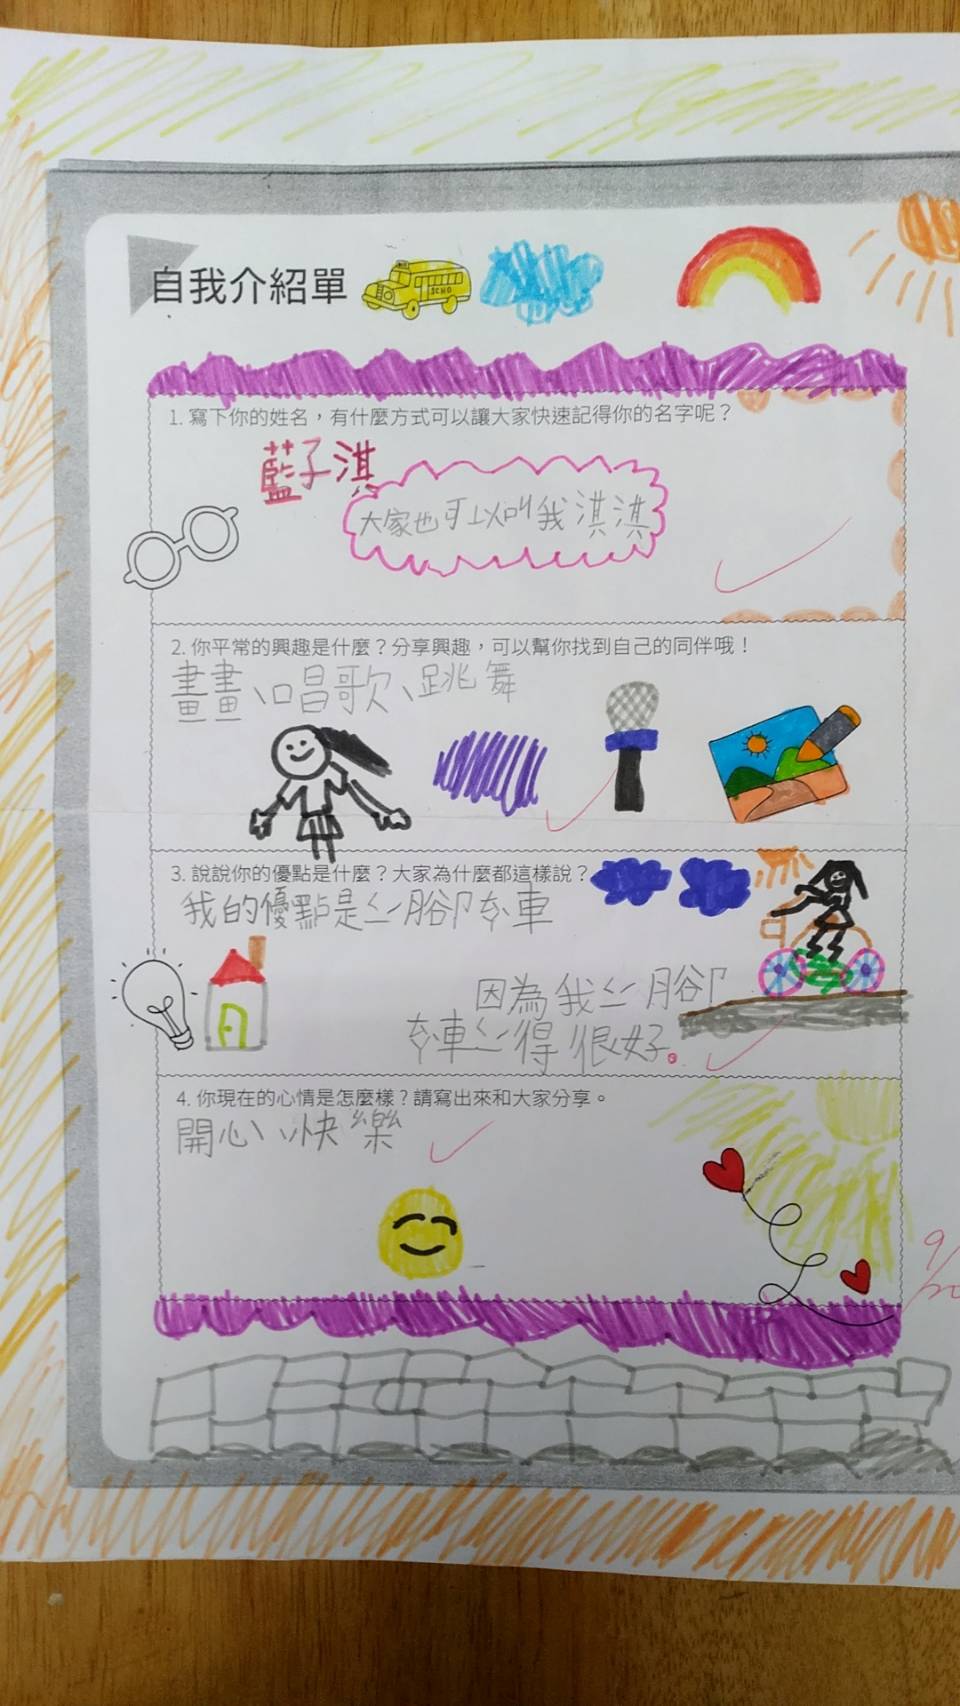 自我介紹單
SCHO
1. 寫下你的姓名，有什麼方式可以讓大家快速記得你的名字呢？
藍子淇
大家也可以叫我淇淇
2. 你平常的興趣是什麼？分享興趣，可以幫你找到自己的同伴哦！
畫畫、唱歌、跳舞
3. 說說你的優點是什麼？大家為什麼都這樣說？
我的優點是ㄑㄧˊ腳ㄊㄚˋ車
因為我ㄑㄧˊ腳
ㄊㄚˋ車ㄑㄧˊ得很好。
4. 你現在的心情是怎麼樣？請寫出來和大家分享。
開心、快樂
9/20